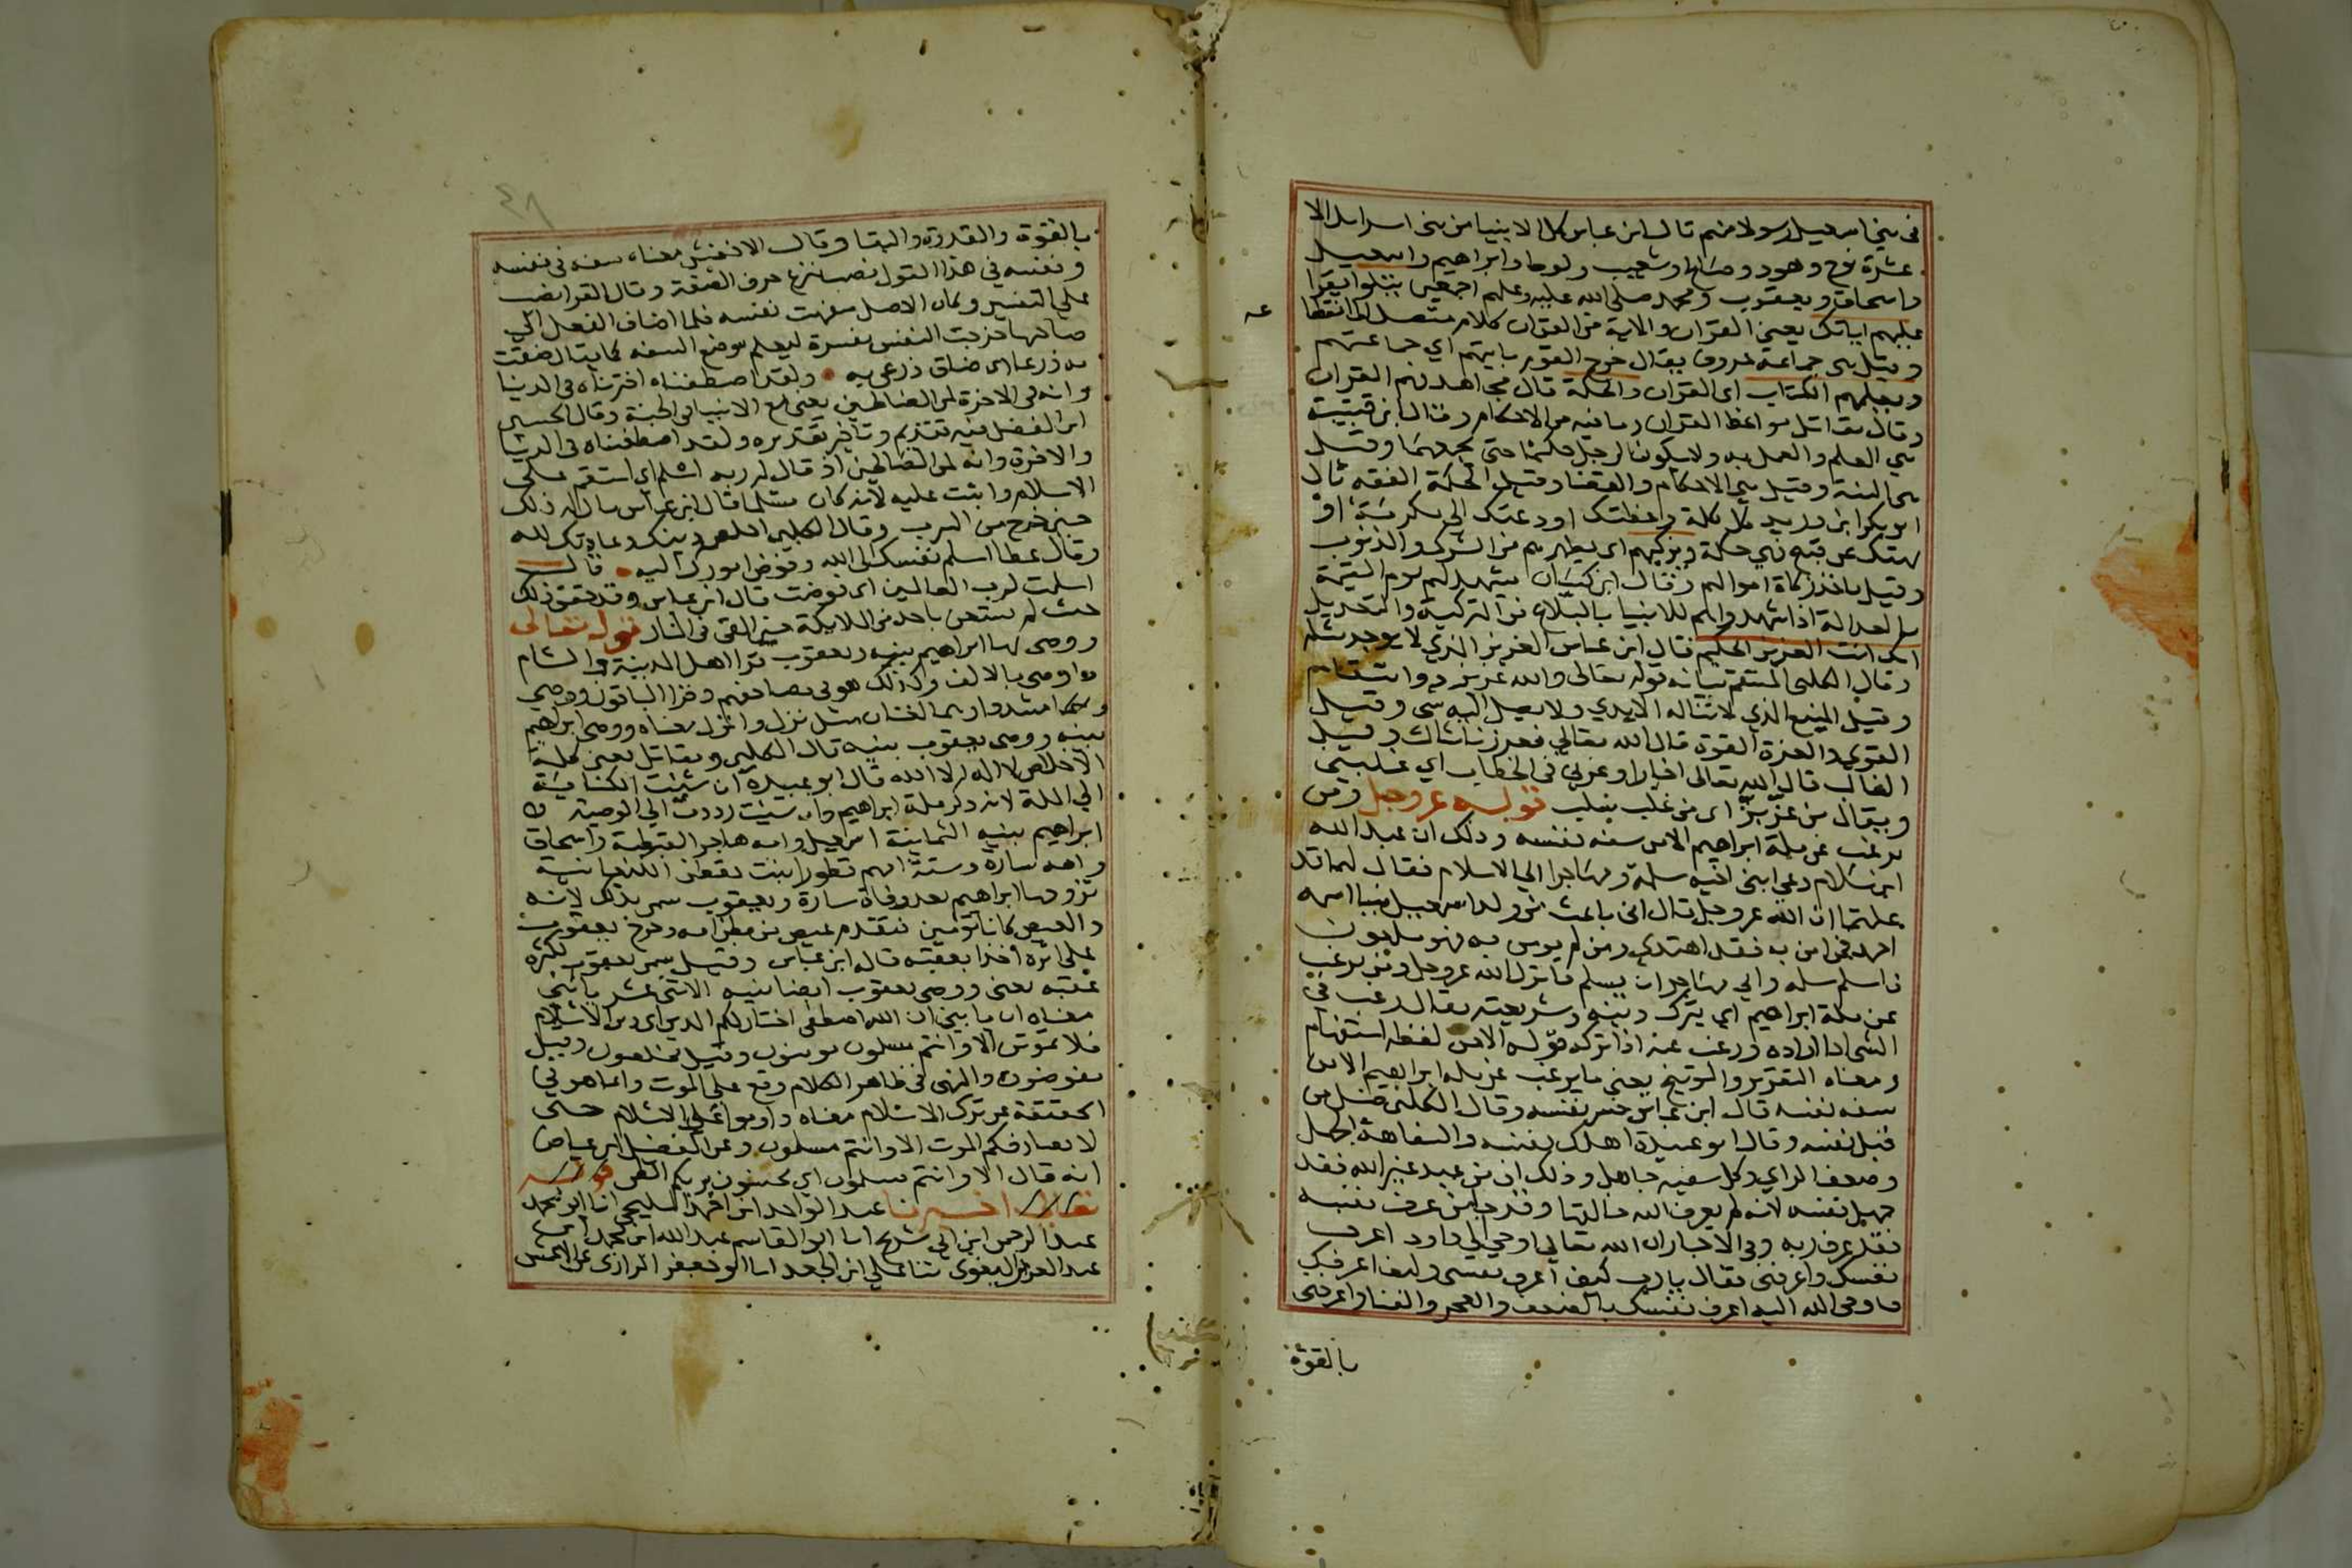 في بني اسمعيل رسولا منهم قال ابن عباس كل الانبيا من بني اسرايل الا
عشرة نوح وهود وصالح وشعيب ولوط وابراهيم واسمعيل
واسحاق ويعقوب ومحمد صلى الله عليه وعليهم اجمعين يتلوا يقرا
عليهم اياتك يعني القران والاية من القران كلام متصل الى انقطا
عه
وقيل هي جماعة حروف يقال خرج القوم بايتهم اي جماعتهم
ويعلمهم الكتاب اى القران والحكمة قال مجاهد فهم القران
وقال مقاتل مواعظ القران وما فيه من الاحكام وقال ابن قتيبة
هي العلم والعمل به ولا يكون الرجل حكيما حتى يجمعهما وقيل
هى السنة وقيل هي الاحكام والقضا وقيل الحكمة الفقه قال
ابو بكر ابن دريد كل كلمة وعظتك او دعتك الى مكرمة او
نهتك عن قبيح فهي حكمة ويزكيهم اى يطهرهم من الشرك والذنوب
وقيل ياخذ زكاة اموالهم وقال ابن كيسان يشهد لهم يوم القيمة
بالعدالة اذا شهدوا هم للانبيا بالبلاغ من التزكية والتعديل
انك انت العزيز الحكيم قال ابن عباس العزيز الذي لا يوجد مثله
وقال الكلبى المنتقم بيانه قوله تعالى والله عزيز ذو انتقام
وقيل المنيع الذي لا تناله الايدي ولا يصل اليه شى وقيل
القوي والعزة القوة قال الله تعالي فعززنا بثالث وقيل
الغالب قال الله تعالى اخبارا وعزني فى الخطاب اي غلبني
ويقال من عز بز اى من غلب سلب قوله عز وجل ومن
يرغب عن ملة ابراهيم الا من سفه نفسه وذلك ان عبد الله
ابن سلام دعي ابنى اخيه سلمة ومهاجرا الي الاسلام فقال لهما قد
علمتما ان الله عز وجل قال انى باعث من ولد اسمعيل نبيا اسمه
احمد فمن امن به فقد اهتدي ومن لم يومن به فهو ملعون
فاسلم سلمه وابي مهاجر ان يسلم فانزل الله عز وجل ومن يرغب
عن ملة ابراهيم اي يترك دينه وشريعته يقال رغب في
الشى اذا اراده ورغب عنه اذا تركه قوله الا من لفظه استفهام
ومعناه التقرير والتوبيخ يعني ما يرغب عن ملة ابراهيم الا من
سفه نفسه قال ابن عباس خسر نفسه وقال الكلبى ضل من
قبل نفسه وقال ابو عبيدة اهلك نفسه والسفاهة الجهل
وضعف الراي وكل سفيه جاهل وذلك ان من عبد غير الله فقد
جهل نفسه لانه لم يعرف الله خالقها وقد جا من عرف نفسه
فقد عرف ربه وفى الاخبار ان الله تعالي اوحي الي داود اعرف
نفسك واعرفني فقال يا رب كيف اعرف نفسى وكيف اعرفك
فاوحى الله اليه اعرف نفسك بالضعف والعجز والفنا واعرفنى
بالقوة
٤٨
بالقوة والقدرة والبقا وقال الاخفش معناه سفه فى نفسه
ونفسه في هذا القول نصب بنزع حرف الصفة وقال الفرا نصب
علي التفسير وكان الاصل سفهت نفسه فلما اضاف الفعل الي
صاحبها خرجت النفس مفسرة ليعلم موضع السفه كما يقال ضقت
به ذرعا اى ضاق ذرعى به ولقد اصطفيناه اخترناه فى الدنيا
وانه فى الاخرة لمن الصالحين يعني مع الانبيا في الجنة وقال الحسين
ابن الفضل فيه تقديم وتاخير تقديره ولقد اصطفيناه فى الدنيا
والاخرة وانه لمن الصالحين اذ قال له ربه اسلم اى استقم على
الاسلام واثبت عليه لانه كان مسلما قال ابن عباس قال له ذلك
حين خرج من السرب وقال الكلبى اخلص دينك وعبادتك لله
وقال عطا اسلم نفسك الى الله وفوض امورك اليه قال
اسلمت لرب العالمين اى فوضت قال ابن عباس وقد حقق ذلك
حيث لم يستعن باحد من الملايكة حين القى فى النار قوله تعالى
ووصى بها ابراهيم بنيه ويعقوب قرا اهل المدينة والشام
واوصى بالالف وكذلك هو في مصاحفهم وقرا الباقون ووصي
مشددا وهما لغتان مثل نزل وانزل معناه ووصى ابراهيم
بنيه ووصى يعقوب بنيه قال الكلبى ومقاتل يعنى كلمة
الاخلاص لا اله الا الله قال ابو عبيدة ان شيت الكناية
الي الملة لانه ذكر ملة ابراهيم وان شيت رددت الي الوصية
ابراهيم بنيه الثمانية اسمعيل وامه هاجر القبطية واسحاق
وامه سارة وستة امهم قطورا بنت يقطن الكنعانية
تزوجها ابراهيم بعد وفاة سارة ويعقوب سمى بذلك لانه
والعيص كانا توميين فتقدم عيص من بطن امه وخرج يعقوب
على اثره اخذا بعقبه قاله ابن عباس وقيل سمى يعقوب لكثرة
عقبه يعنى ووصى يعقوب ايضا بنيه الاثنى عشر يا بني
معناه ان يا بني ان الله اصطفى اختار لكم الدين اى دين الاسلام
فلا تموتن الا وانتم مسلمون مومنون وقيل مخلصون وقيل
مفوضون والنهى فى ظاهر الكلام وقع على الموت وانما هو في
الحقيقة عن ترك الاسلام معناه داوموا على الاسلام حتى
لا يصادفكم الموت الا وانتم مسلمون وعن الفضيل ابن عياض
انه قال الا وانتم مسلمون اي محسنون بربكم الظن قوله
تعالى اخبرنا عبد الواحد ابن احمد المليحي انا ابو محمد
عبد الرحمن ابن ابي شريح انا ابو القاسم عبد الله ابن محمد ابن
عبد العزيز البغوى ثنا علي ابن الجعد انا ابو جعفر الرازى عن الاعمش